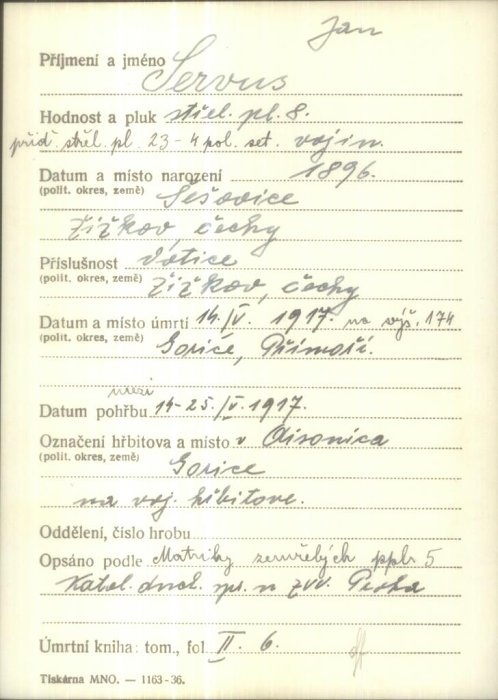 Jan
Příjmení a jméno Servus
Hodnost a pluk střel. pl. 8.
přid. střel. pl. 23 - 4 pol. set. vojín.
Datum a místo narození 1896.
(polit. okres, země) Sešovice
Žižkov, Čechy
Příslušnost Votice
(polit. okres, země) Žižkov, Čechy
Datum a místo úmrtí 14./V. 1917. na výš. 174
(polit. okres, země) Gorice, Přímoří.
mezi
Datum pohřbu 14-25./V. 1917.
Označení hřbitova a místo v Aisovica
(polit. okres, země) Gorice
na voj. hřbitově.
Oddělení, číslo hrobu
Opsáno podle Matriky zemřelých pplr 5
Katol. duch. spr. u ZVV. Praha
Úmrtní kniha: tom., fol. II. 6.
Tiskárna MNO. — 1163-36.